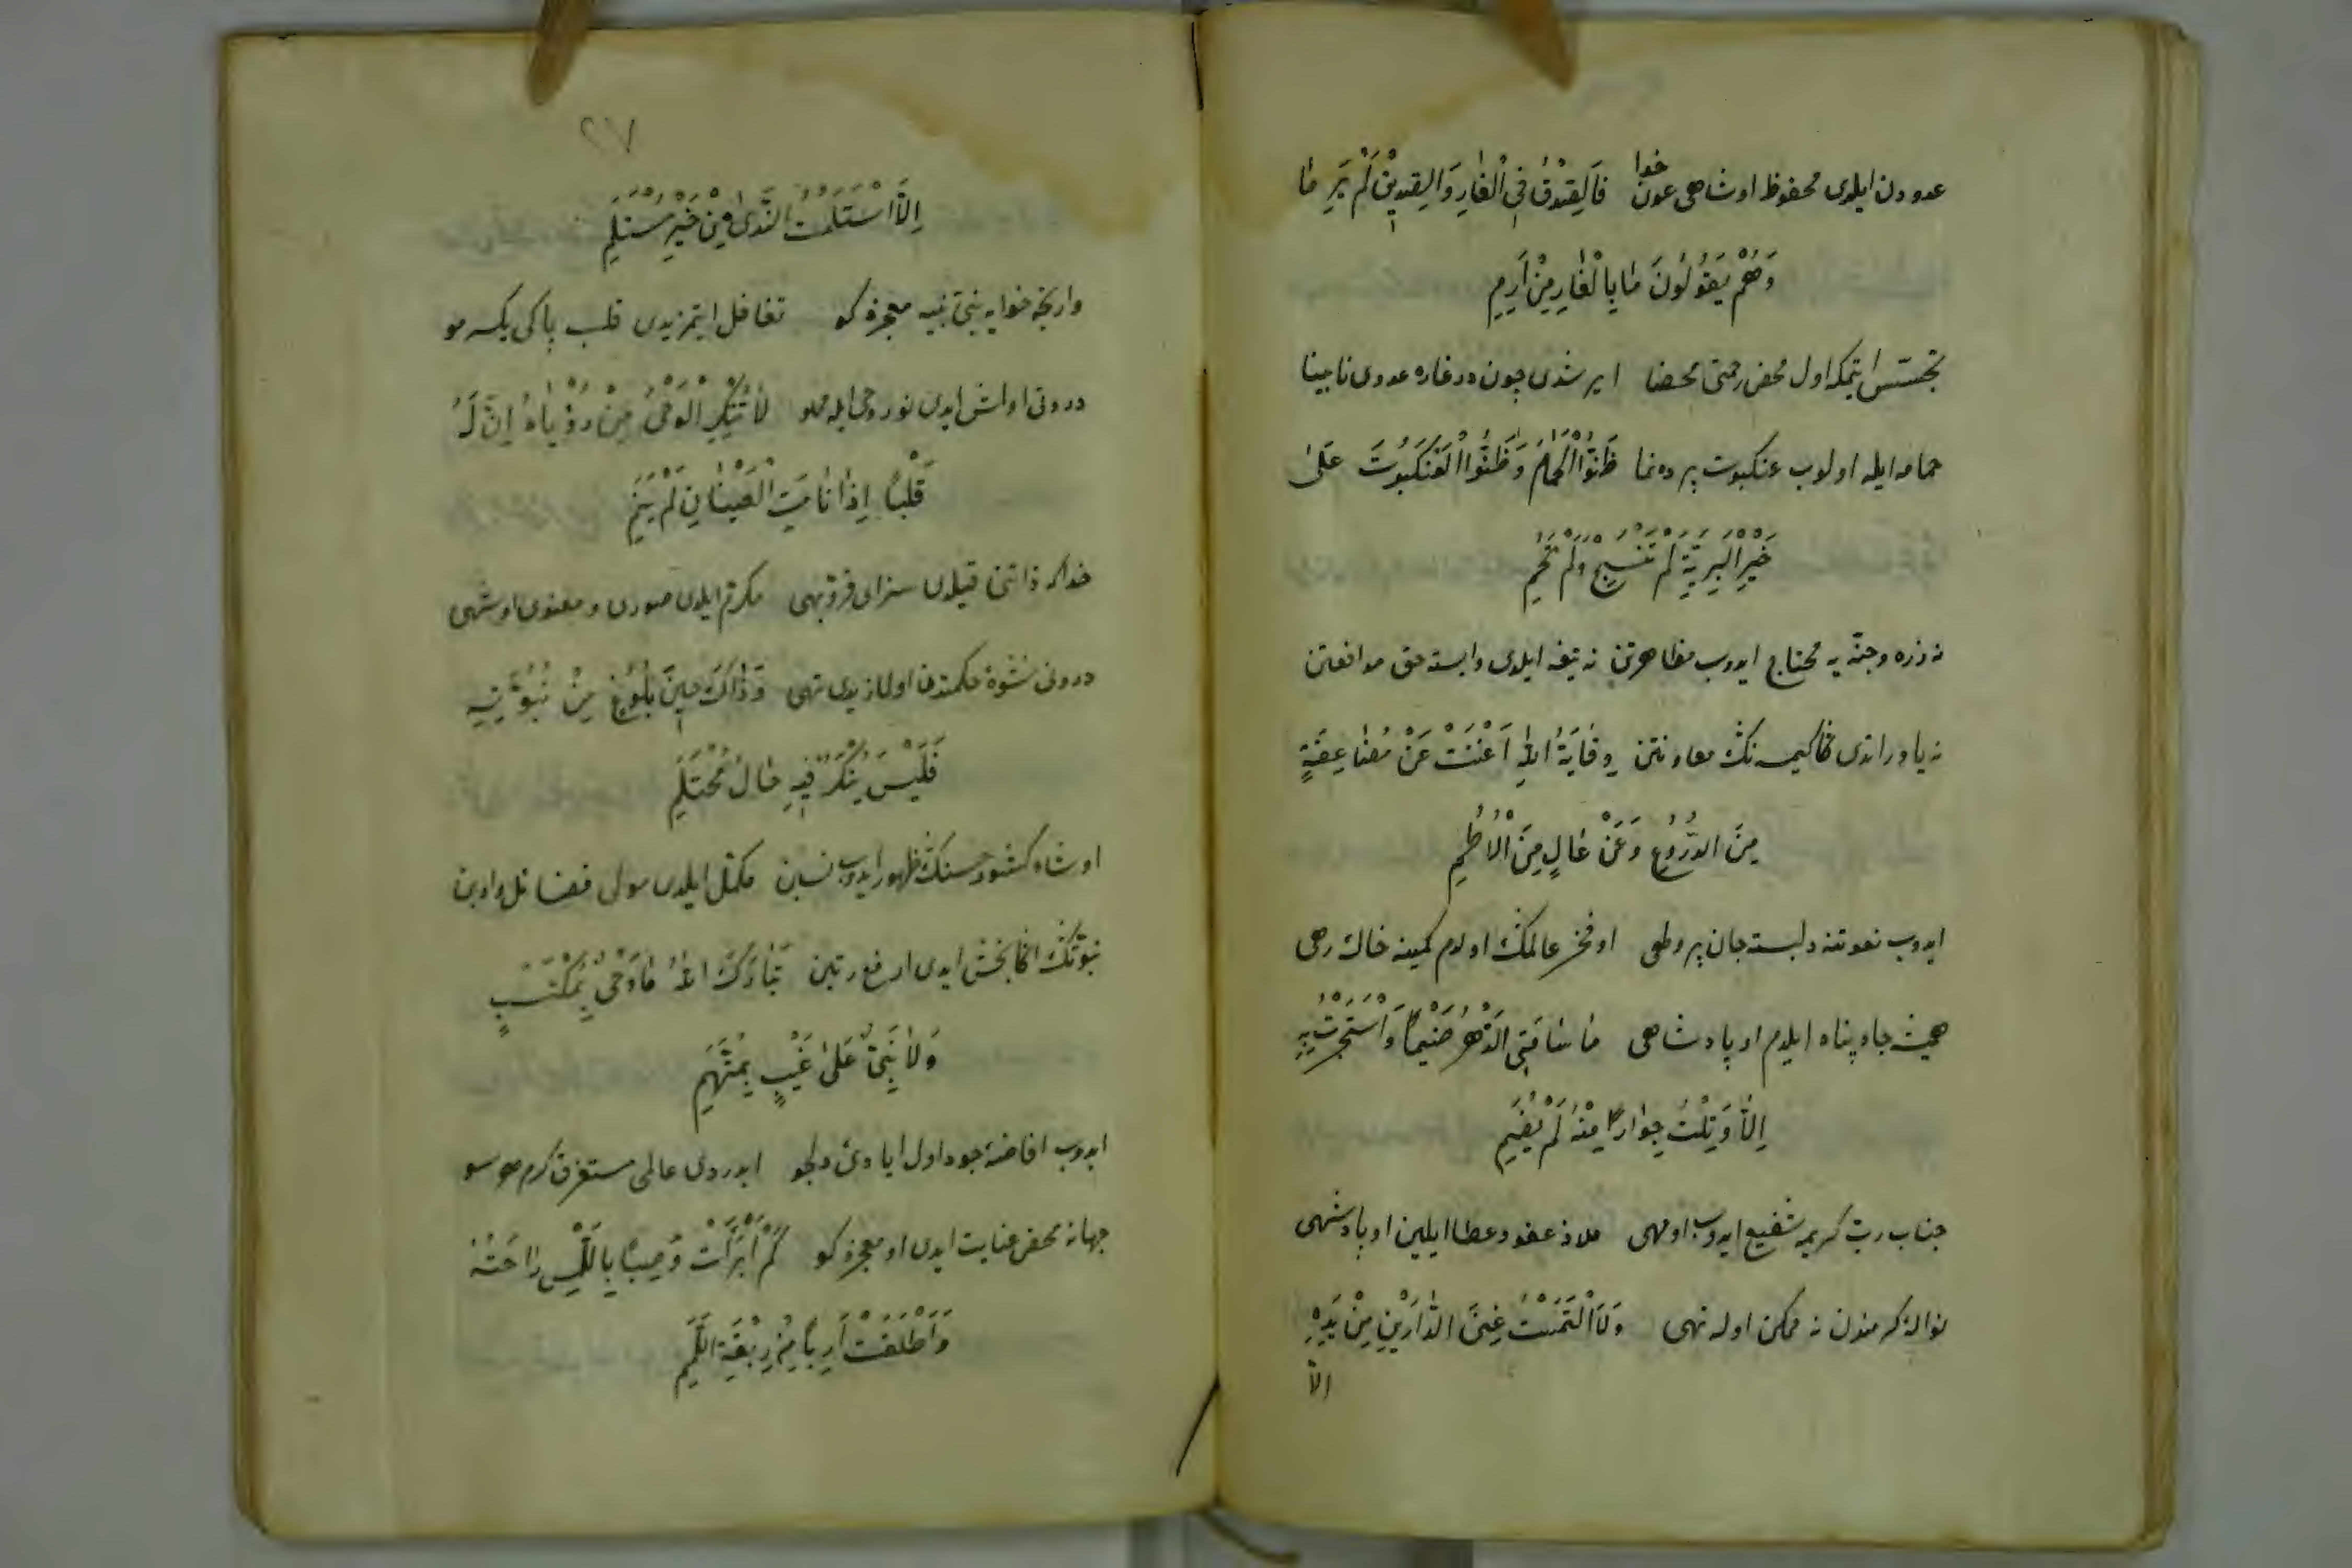 عدودن ایلدی محفوظ اوشاهی عون خدا فَالصِّدْقُ فِی الْغَارِ وَالصِّدِّیقُ لَمْ یَرِمَا
وَهُمْ یَقُولُونَ مَا بِالْغَارِ مِنْ اَرِمِ
تجسس ایتمکه اول محض رحمتی محضا ایرشدی چون در غاره عدوی نابینا
حمامه ایله اولوب عنکبوت پرده نما ظَنُّوا الْحَمَامَ وَظَنُّوا الْعَنْکَبُوتَ عَلَی
خَیْرِ الْبَرِیَّةِ لَمْ تَنْسِجْ وَلَمْ تَحُمِ
نه زره وجنّه یه محتاج ایدوب مظاهرتن نه تیغه ایلدی وابسته حق مدافعتن
نه یاور اتدی کیمسه نڭ معاونتن وِقَایَةُ اللهِ اَغْنَتْ عَنْ مُضَاعَفَةٍ
مِنَ الدُّرُوعِ وَعَنْ عَالٍ مِنَ الْاُطُمِ
ایدوب نعوتنه دلبسته جان اوفخر عالمڭ اولدم کمینه خاك رهی
جاه پناه ایلدم او پادشاهی مَا سَامَنِی الدَّهْرُ ضَیْمًا وَاسْتَجَرْتُ بِهِ
اِلاَّ وَنِلْتُ جِوَارًا مِنْهُ لَمْ یُضَمِ
جناب رب کریمه شفیع ایدوب اومهی ملاذ عفو و عطا ایلین او پادشهی
نوالۀ کرمندن نه ممکن اوله تهی وَلاَ الْتَمَسْتُ غِنَی الدَّارَیْنِ مِنْ یَدِهِ
الاّ
٢٧
اِلاَّ اسْتَلَمْتُ النَّدَی مِنْ خَیْرِ مُسْتَلَمِ
وارنجه خوابه معجزه کو تغافل ایتمزیدی قلب پاکی یکسر مو
درونی اولمش ایدی نور وحی ایله مملو لاَ تُنْکِرِ الْوَحْیَ مِنْ رُؤْیَاهُ اِنَّ لَهُ
قَلْبًا اِذَا نَامَتِ الْعَیْنَانِ لَمْ یَنَمِ
خدا که ذاتن قیلدی سزای فرّ وبهی مکرّم ایلدی صوری و معنوی اوشهی
درونی نشوۀ حکمتدن اولمازیدی تهی وَذَاكَ حِینَ بُلُوغٍ مِنْ نُبُوَّتِهِ
فَلَیْسَ یُنْکَرُ فِیهِ حَالُ مُحْتَلَمِ
اوشاه کشور حسنڭ ظهور ایدوب مکمّل ایلدی مولی فضائل وادبن
نبوّتڭ اڭا بخش ایدی ارفع رتبن تَبَارَكَ اللهُ مَا وَحْیٌ بِمُکْتَسَبٍ
وَلاَ نَبِیٌّ عَلَی غَیْبٍ بِمُتَّهَمِ
ایدوب افاضۀ جود اول ایادئ دلجو ایدردی عالمی مستغرق کرم سو
جهانه محض عنایت ایدی او معجزه کو کَمْ اَبْرَأَتْ وَصِبًا بِاللَّمْسِ رَاحَتُهُ
وَاَطْلَقَتْ اَرِبًا مِنْ رِبْقَةِ اللَّمَمِ